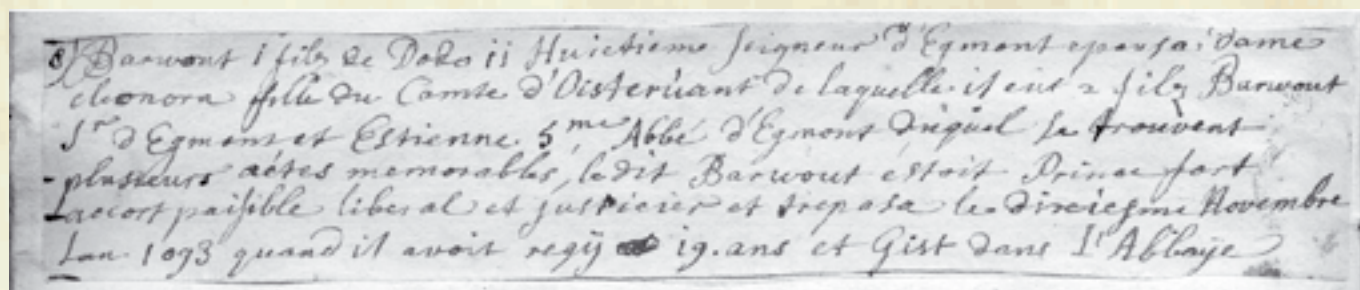 8) Barwout 1 filz de Dodo ii Huictieme seigneur d'Egmont epousa dame
eleonora fille du Comte d'Oisteruant de laquelle il eut 2 filz Barwout
Sr d'Egmont et Estienne 5me Abbé d'Egmont duquel se trouvent
plusieurs actes memorables, ledit Barwout estoit Prince fort
accort paisible liberal et justicier et trepasa le dixiesme Novembre
Lan 1093 quand il avoit regÿ 19. ans et Gist dans l'Abbaÿe